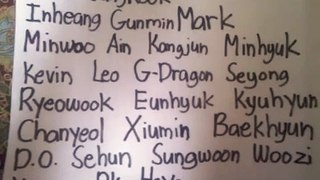 Inheang Gunmin Mark
Minwoo Ain Kangjun Minhyuk
Kevin Leo G-Dragon Seyong
Ryeowook Eunhyuk Kyuhyun
Chanyeol Xiumin Baekhyun
D.O. Sehun Sungwoon Woozi